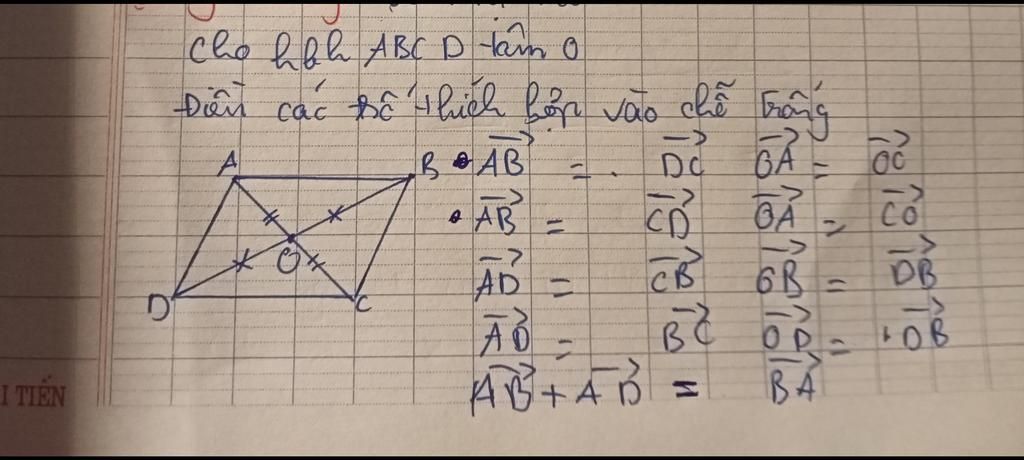 Cho hbh ABCD tâm O
Điền các số thích hợp vào chỗ trống
A
B
O
D
C
• $\overrightarrow{AB}$ = . $\overrightarrow{DC}$ $\overrightarrow{OA}$ = $\overrightarrow{OC}$
• $\overrightarrow{AB}$ = $\overrightarrow{CD}$ $\overrightarrow{OA}$ = $\overrightarrow{CO}$
$\overrightarrow{AD}$ = $\overrightarrow{CB}$ $\overrightarrow{OB}$ = $\overrightarrow{DB}$
$\overrightarrow{AD}$ = $\overrightarrow{BC}$ $\overrightarrow{OD}$ = $\overrightarrow{OB}$
$\overrightarrow{AB}$ + $\overrightarrow{AD}$ = $\overrightarrow{BA}$
I TIẾN